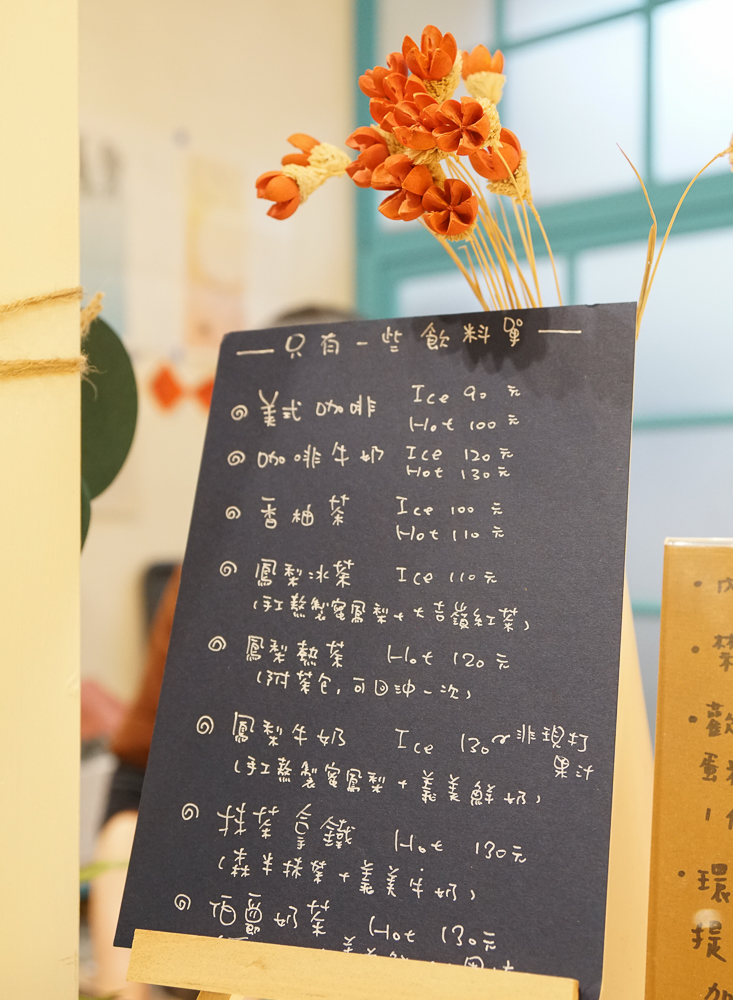 — 只有一些飲料單 —
美式咖啡 Ice 90元
Hot 100元
咖啡牛奶 Ice 120元
Hot 130元
香柚茶 Ice 100元
Hot 110元
鳳梨冰茶 Ice 110元
(手工熬製蜜鳳梨+大吉嶺紅茶)
鳳梨熱茶 Hot 120元
(附茶包,可回沖一次)
鳳梨牛奶 Ice 130 非現打
果汁
(手工熬製蜜鳳梨+義美鮮奶)
抹茶拿鐵 Hot 130元
(森半抹茶+義美牛奶)
伯爵奶茶 Hot 130元
蛋
環
提
加